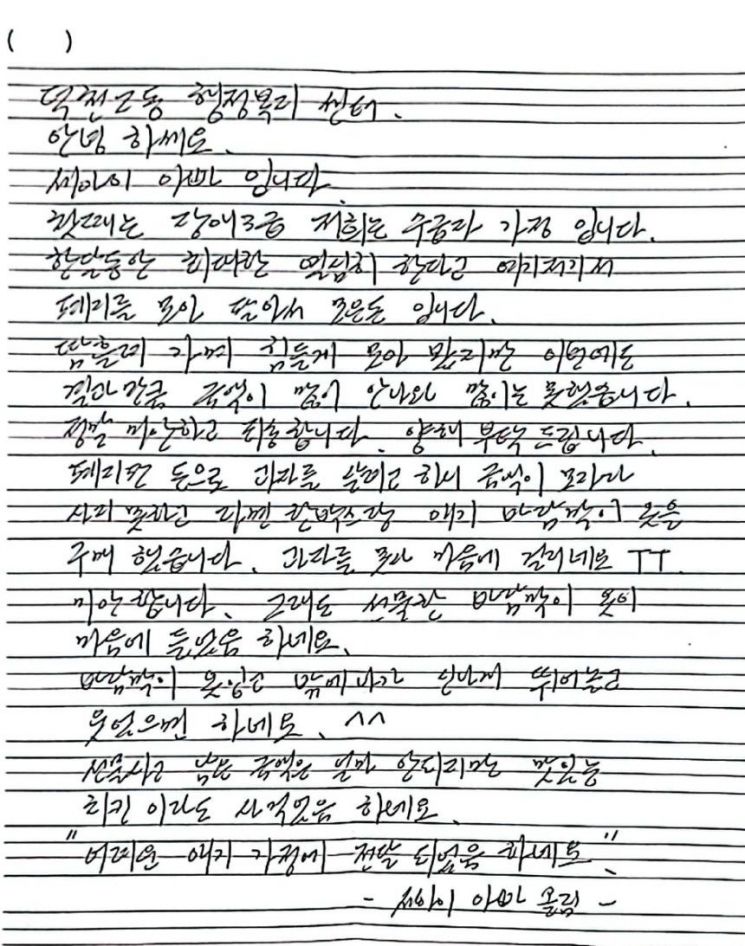 ( )
덕천2동 행정복지 센터.
안녕 하세요.
세아이 아빠 입니다.
첫째는 장애3급 저희는 수급자 가정 입니다.
한달동안 최대한 열심히 한다고 여기저기서
폐지를 모아 팔아서 모은돈 입니다.
땀흘려 가며 힘들게 모아 팔지만 이번에도
결과 만큼 금액이 많이 안나와 많이는 못했습니다.
정말 미안하고 죄송합니다. 양해 부탁 드립니다.
폐지판 돈으로 과자를 살려고 하니 금액이 모자라
사지 못하고 라면 한박스랑 애기 바람막이 옷을
구매 했습니다. 과자를 못사 마음에 걸리네요 TT.
미안합니다. 그래도 선물한 바람막이 옷이
마음에 들었음 하네요.
바람막이 옷입고 밖에나가 신나게 뛰어놀고
웃었으면 하네요. ^^
선물사고 남은 금액은 얼마 안되지만 맛있는
치킨 이라도 사먹었음 하네요.
"어려운 애기 가정에 전달 되었음 하네요".
- 세아이 아빠 올림 -